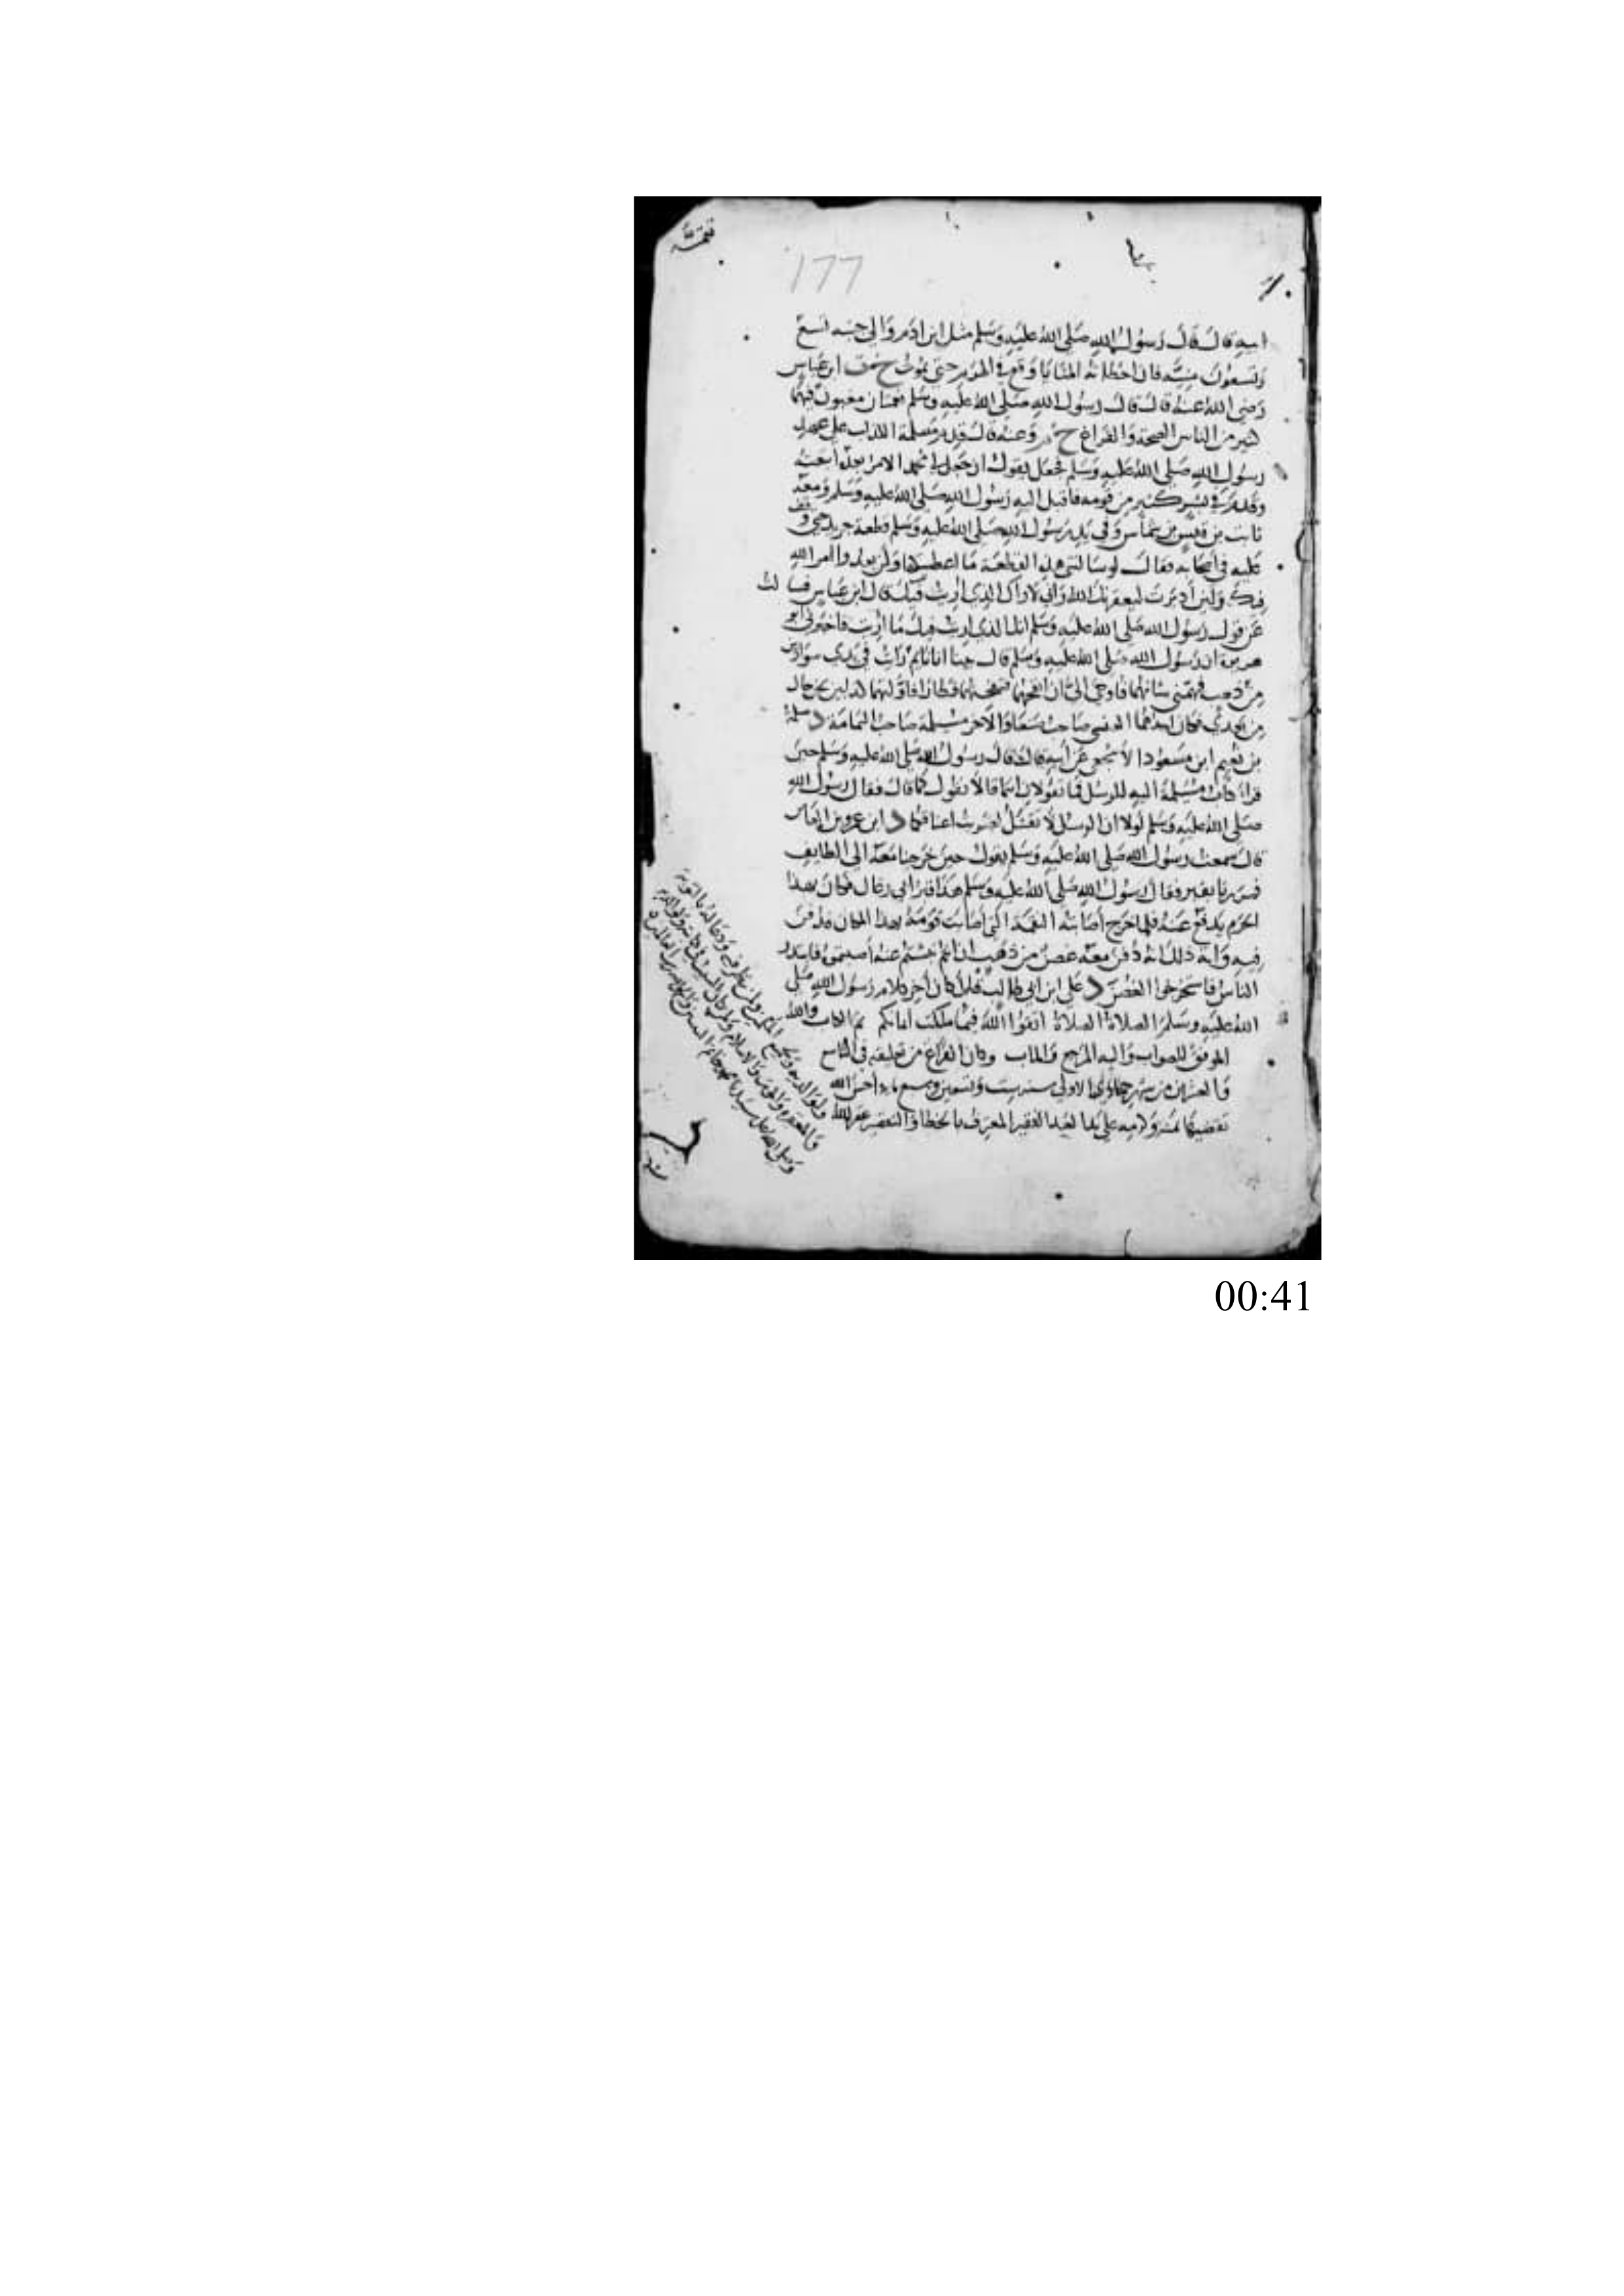 177
ابيه قال قال رسول الله صلى الله عليه وسلم مثل ابن ادم والى جنبه تسع
وتسعون منية فان اخطاته المنايا وقع في الهرم حتى يموت خ ت ابن عباس
رضي الله عنه قال قال رسول الله صلى الله عليه وسلم نعمتان مغبون فيهما
كثير من الناس الصحة والفراغ خ وعنه قال قدم مسيلمة الكذاب على عهد
رسول الله صلى الله عليه وسلم فجعل يقول ان جعل لي محمد الامر بعده اتبعته
وقدم في بشر كثير من قومه فاقبل اليه رسول الله صلى الله عليه وسلم ومعه
ثابت بن قيس بن شماس وفي يد رسول الله صلى الله عليه وسلم قطعة جريد حتى وقف
عليه في اصحابه فقال لو سالتني هذه القطعة ما اعطيتكها ولن يعدوا امر الله
فيك ولين ادبرت ليعقرنك الله واني لاراك الذي اريت فيك قال ابن عباس فسالت
عن قول رسول الله صلى الله عليه وسلم انك الذي اريت فيك ما اريت فاخبرني ابو
هريرة ان رسول الله صلى الله عليه وسلم قال بينا انا نايم رايت في يدي سوارين
من ذهب فهمني شانهما فاوحي الي ان انفخهما فنفختهما فطارا فاولتهما كذابين يخرجان
من بعدي فكان احدهما العنسي صاحب صنعا والاخر مسيلمة صاحب اليمامة د سلمة
بن نعيم ابن مسعود الاشجعي عن ابيه قال قال رسول الله صلى الله عليه وسلم حين
قرا كتاب مسيلمة اليه للرسل فما تقولان انتما قالا نقول كما قال فقال رسول الله
صلى الله عليه وسلم لولا ان الرسل لا تقتل لضربت اعناقكما د ابن عمرو بن العاص
قال سمعت رسول الله صلى الله عليه وسلم يقول حين خرجنا معه الى الطايف
فمررنا بقبر فقال رسول الله صلى الله عليه وسلم هذا قبر ابي رغال فكان بهذا
الحرم يدفع عنه فلما خرج اصابته النقمة التي اصابت قومه بهذا المكان فدفن
فيه واية ذلك انه دفن معه غصن من ذهب ان انتم نبشتم عنه اصبتموه فابتدر
الناس فاستخرجوا الغصن د علي ابن ابي طالب قال كان اخر كلام رسول الله صلى
الله عليه وسلم الصلاة الصلاة اتقوا الله فيما ملكت ايمانكم تم الكتاب والله
الموفق للصواب واليه المرجع والماب وكان الفراغ من تعليقه في التاسع
والعشرين من شهر جمادي الاولى سنة ست وتسعين وسبع مايه احسن الله
تقضيها بمنه وكرمه على يد العبد الفقير المعترف بالخطا والتقصير غفر الله
00:41